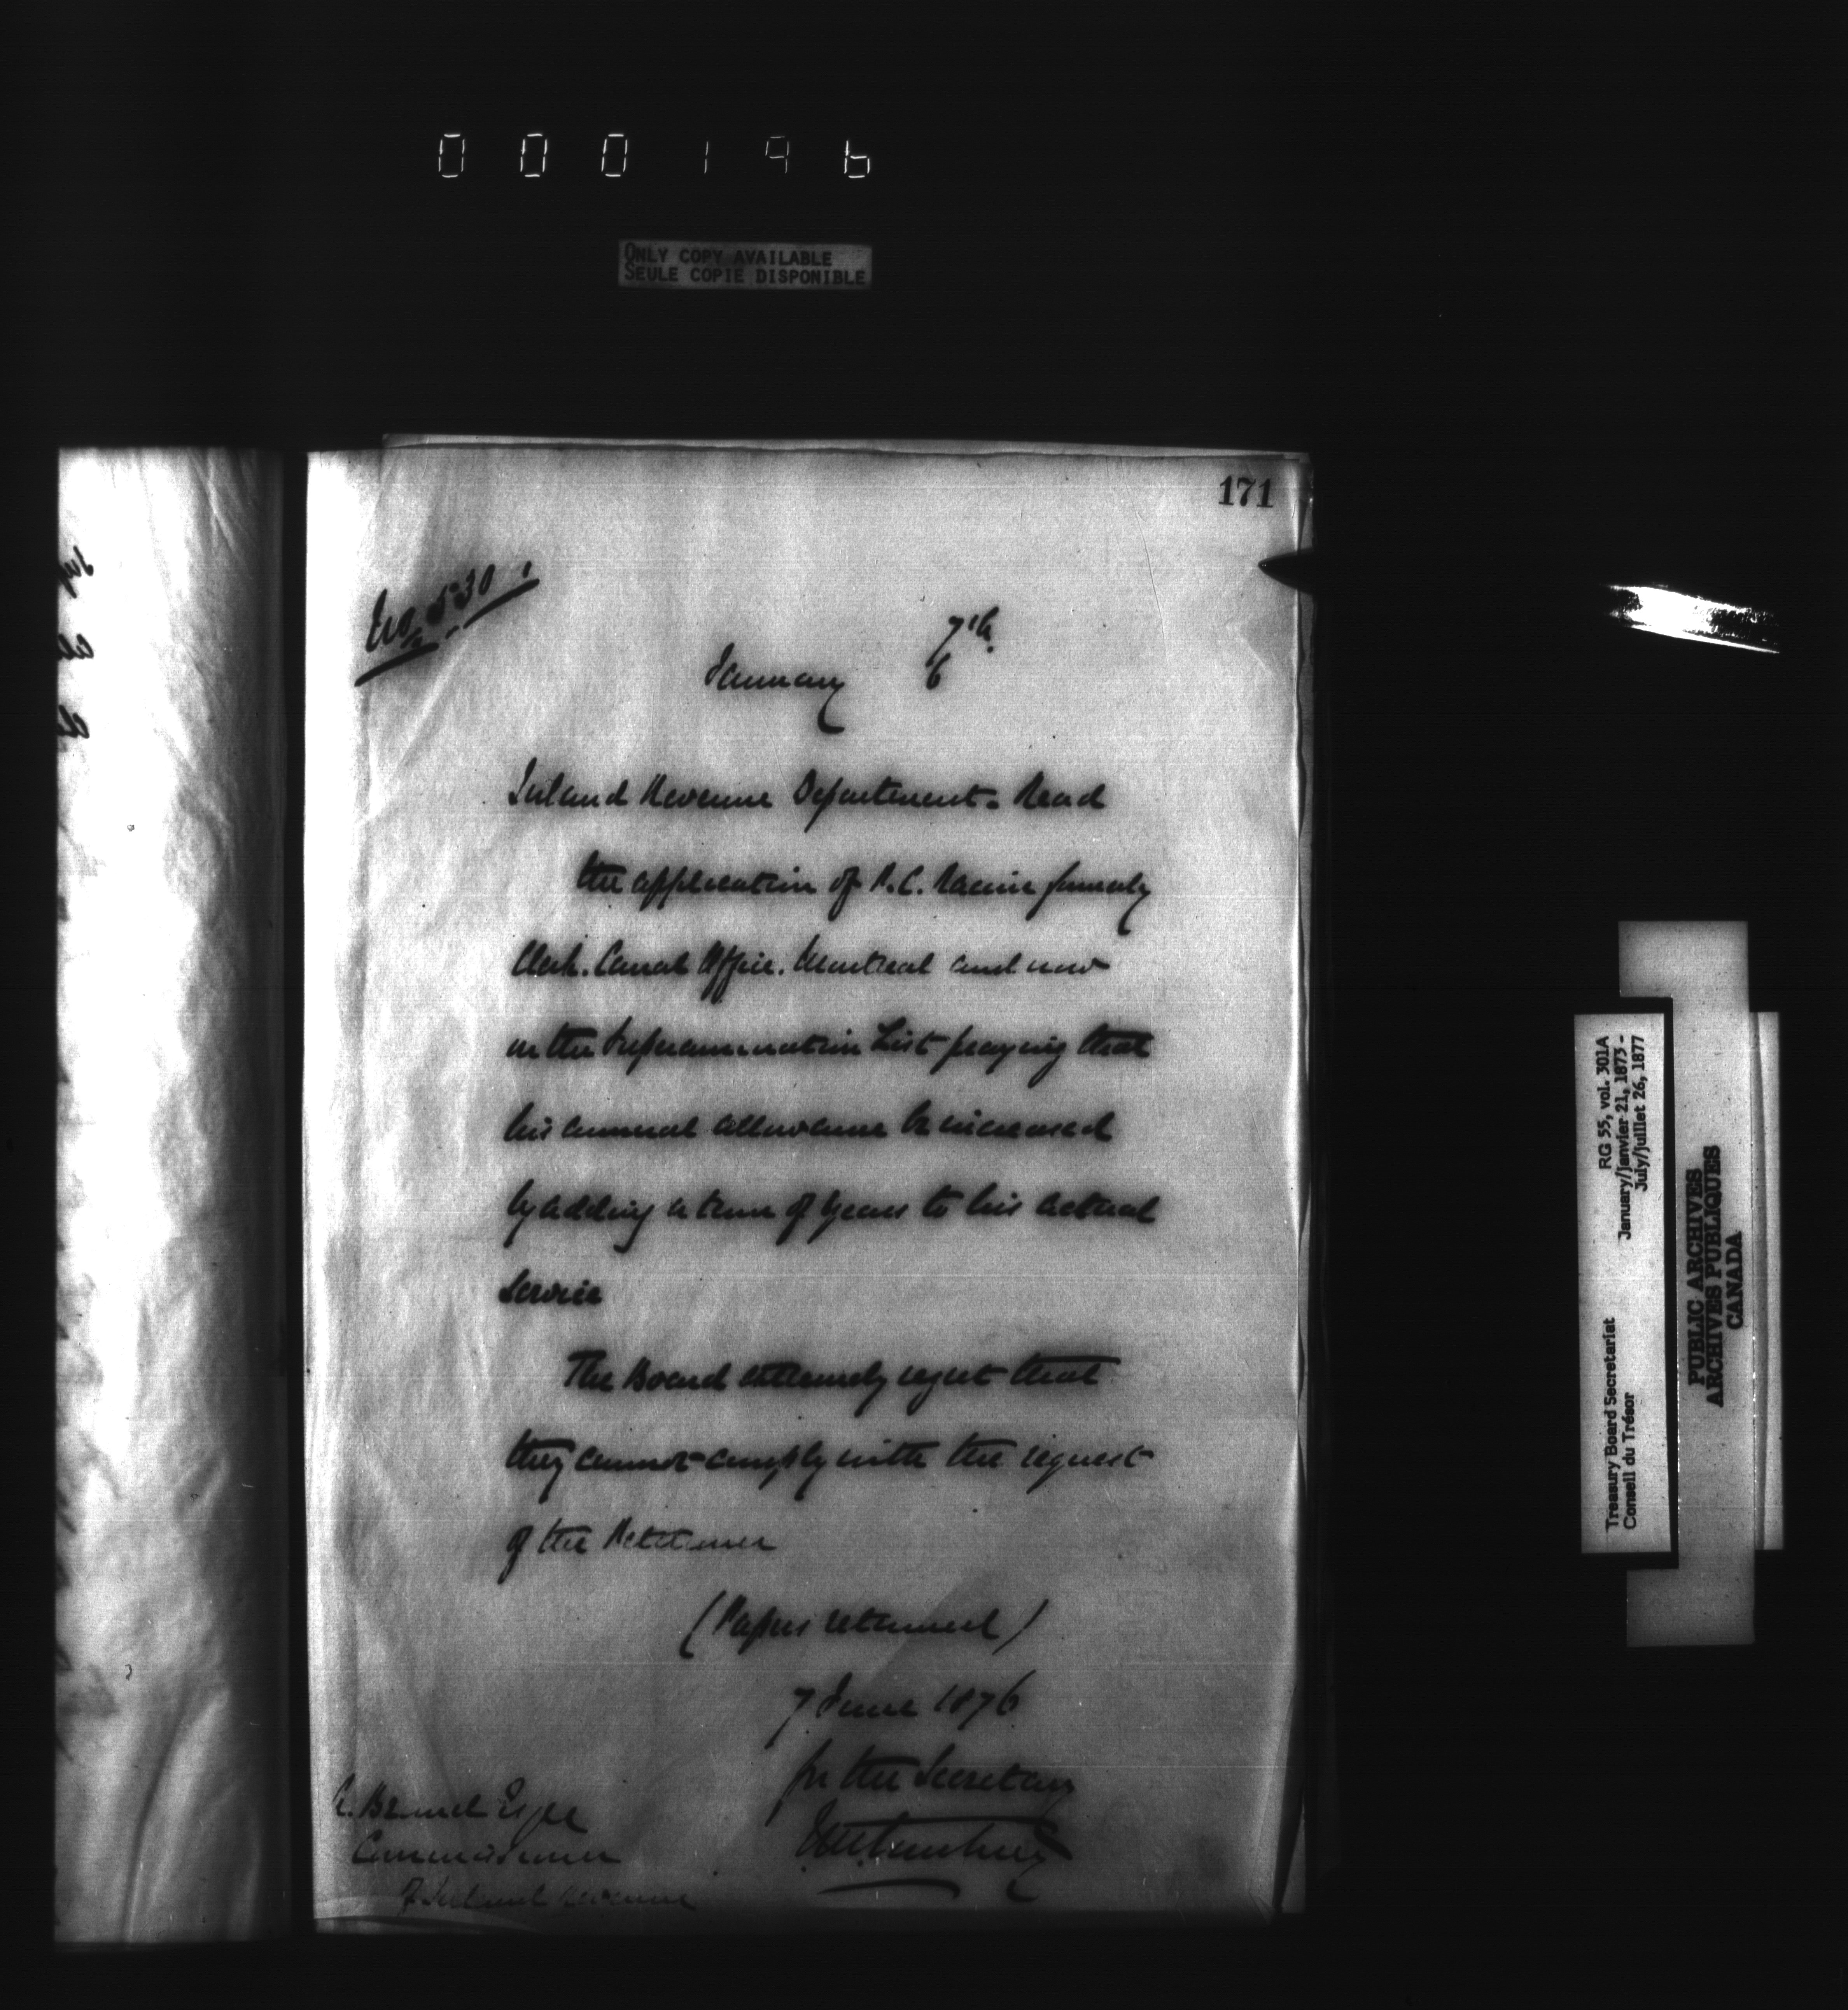 000196
ONLY COPY AVAILABLE
SEULE COPIE DISPONIBLE
171
No 530
7th
January 6
Inland Revenue Department. Read
the application of R. C. Racine formerly
Clerk. Canal Office. Montreal and now
on the Superannuation List praying that
his annual allowance be increased
by adding a term of years to his actual
Service
The Board extremely regret that
they cannot comply with the request
of the Petitioner
(Papers returned)
7 June 1876
for the Secretary
Brunel Esqre
Commissioner
of Inland Revenue
RG 55, vol. 301A
January/janvier 21, 1873 -
July/juillet 26, 1877
Treasury Board Secretariat
Conseil du Trésor
PUBLIC ARCHIVES
ARCHIVES PUBLIQUES
CANADA